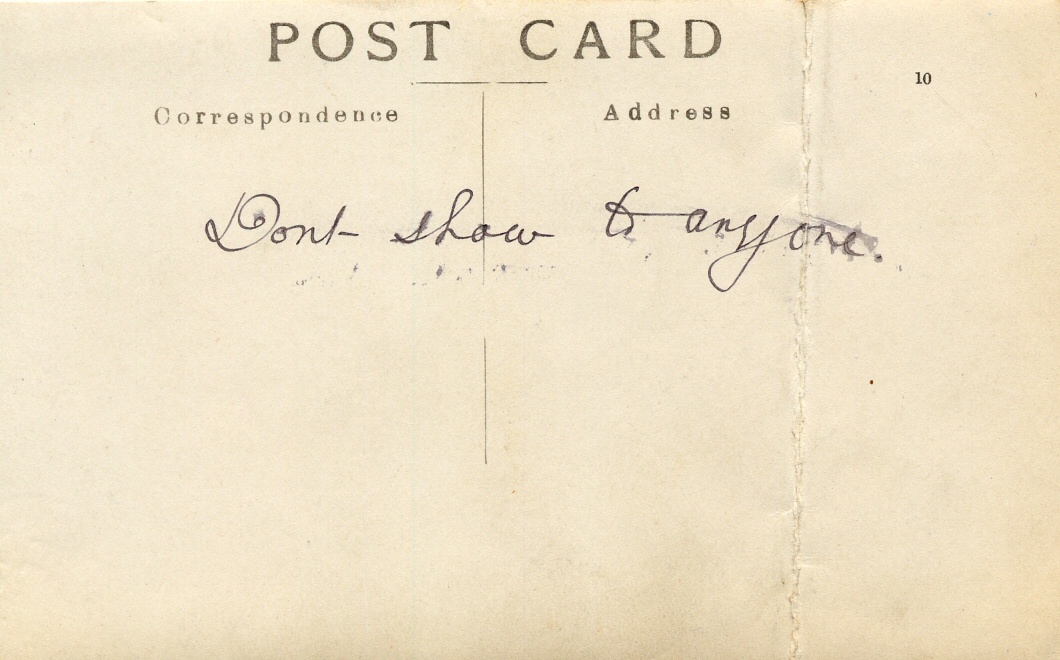 POST CARD
10
Correspondence
Address
Dont show to anyone.